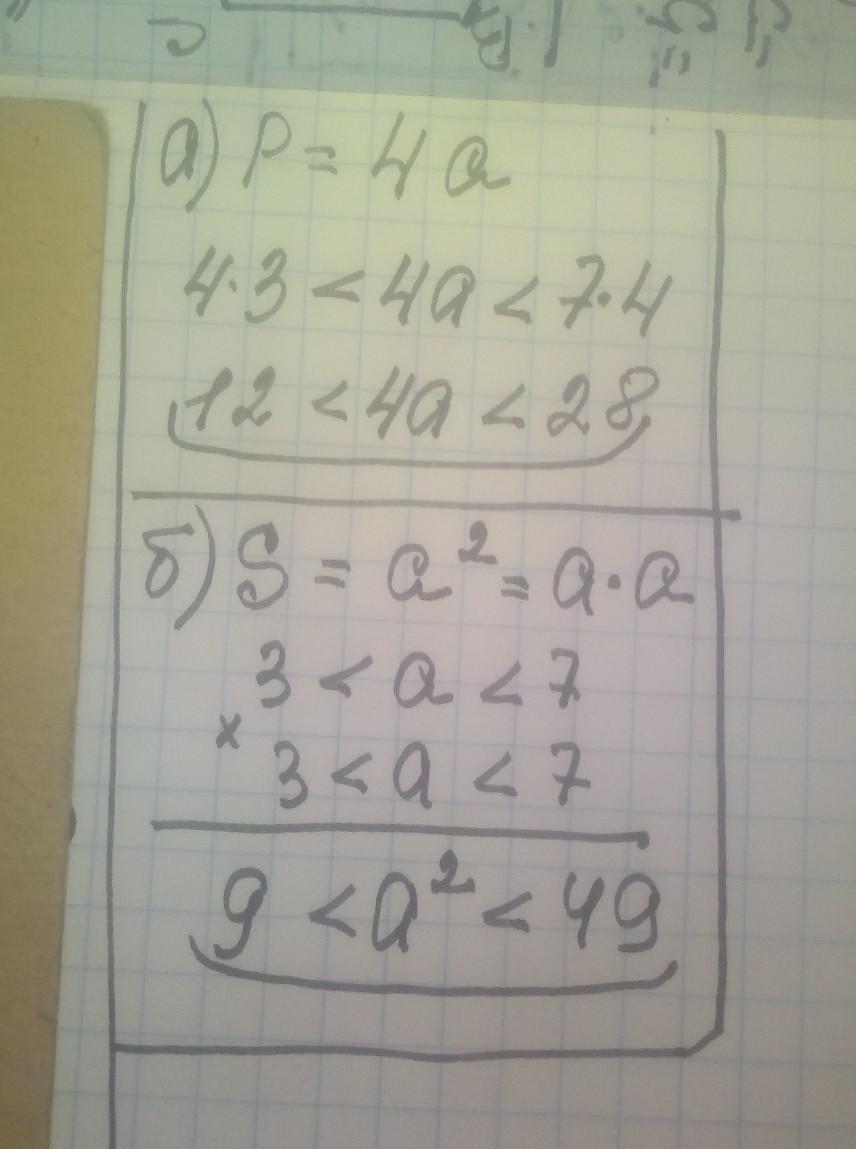 а) P = 4a
4·3 < 4a < 7·4
12 < 4a < 28
б) S = a² = a·a
3 < a < 7
×
3 < a < 7
9 < a² < 49